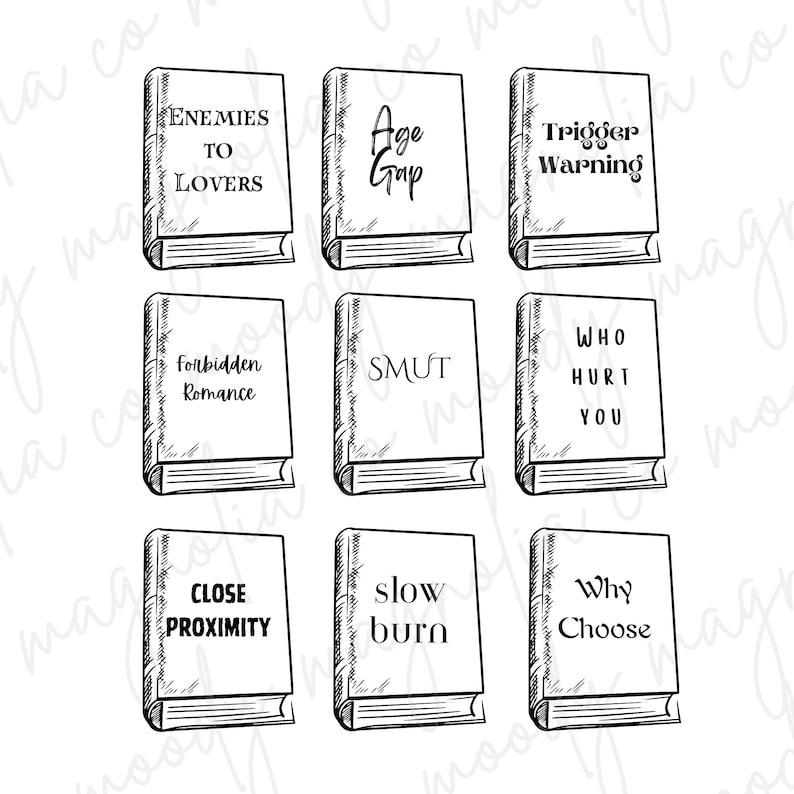 Enemies
to
Lovers
Age
Gap
Trigger
Warning
Forbidden
Romance
SMUT
WHO
HURT
YOU
CLOSE
PROXIMITY
slow
burn
Why
Choose
moody magnolia co